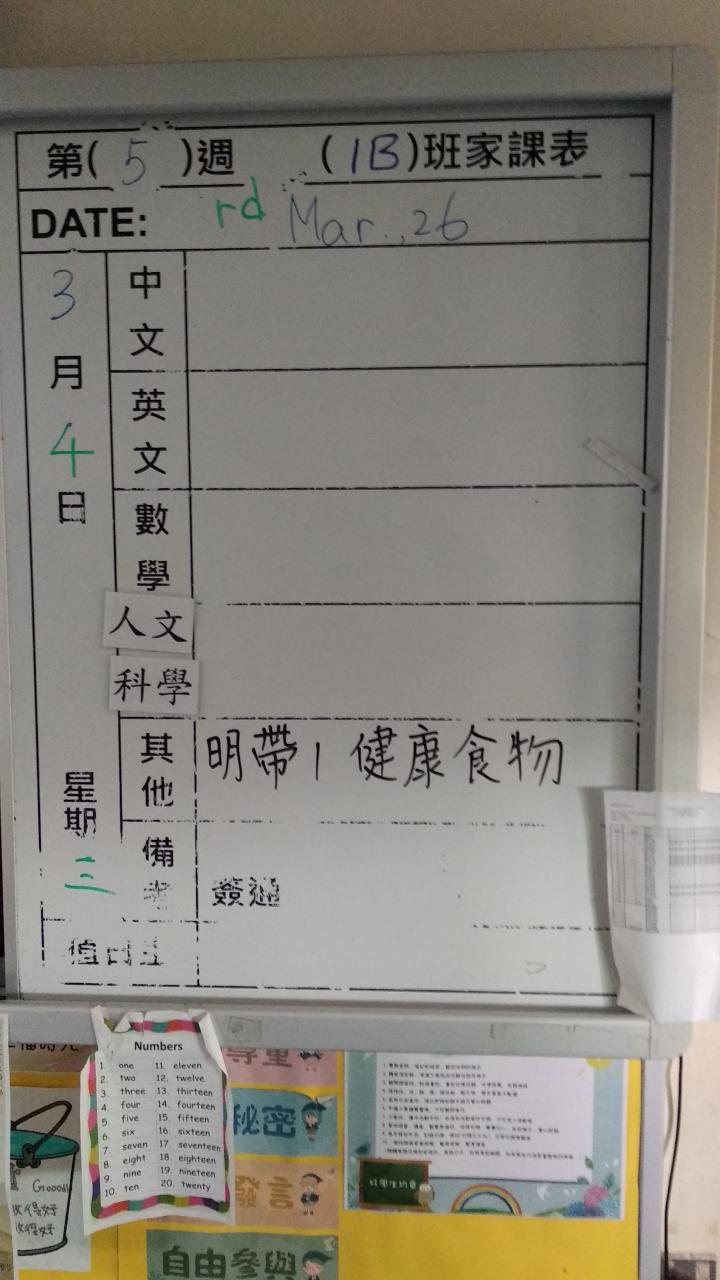 第( 5 )週 (1B)班家課表
DATE: rd Mar., 26
3
月
4
日
星
期
三
中
文
英
文
數
學
人文
科學
其
他
明帶1 健康食物
備
考
簽通
值日生
Numbers
1. one 11. eleven
2. two 12. twelve
3. three 13. thirteen
4. four 14. fourteen
5. five 15. fifteen
6. six 16. sixteen
7. seven 17. seventeen
8. eight 18. eighteen
9. nine 19. nineteen
10. ten 20. twenty
尊重
秘密
發言
自由參與
Goood!
做得好
做得好
好學生約章